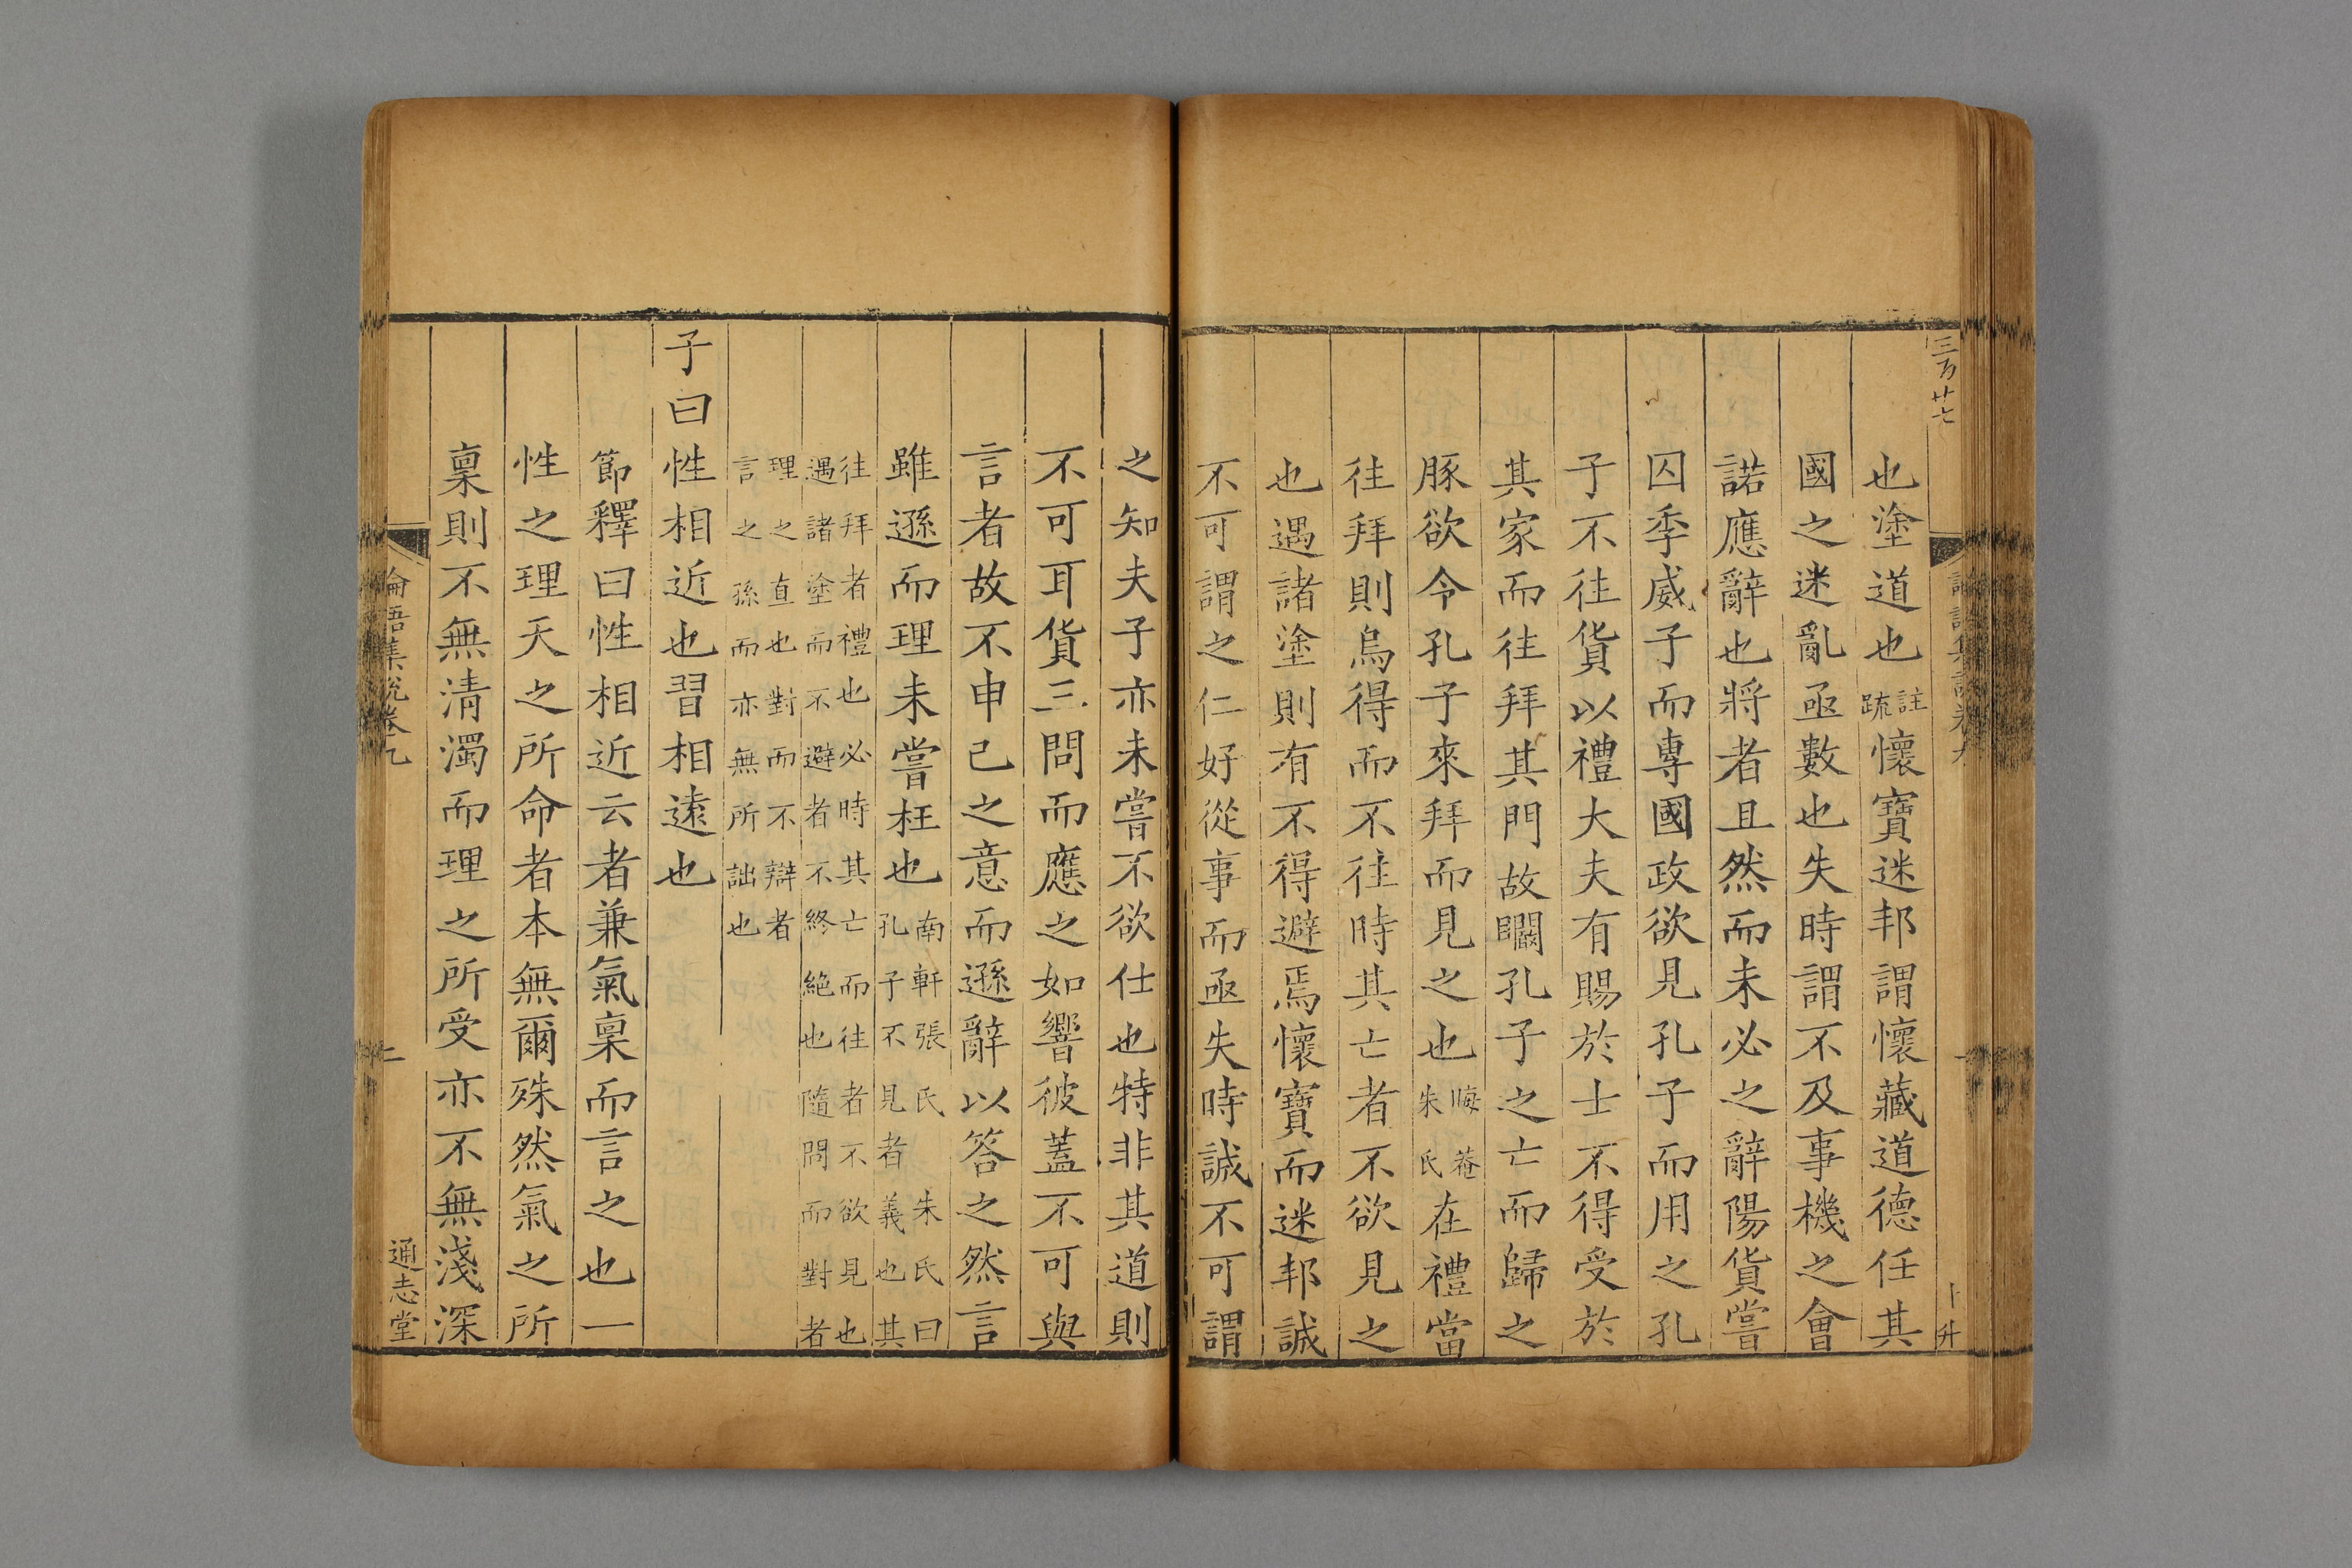 三百廿七
也塗道也註疏懷寶迷邦謂懷藏道德任其
國之迷亂亟數也失時謂不及事機之會
諾應辭也將者且然而未必之辭陽貨嘗
囚季威子而專國政欲見孔子而用之孔
子不往貨以禮大夫有賜於士不得受於
其家而往拜其門故矙孔子之亡而歸之
豚欲令孔子來拜而見之也晦菴朱氏在禮當
往拜則烏得而不往時其亡者不欲見之
也遇諸塗則有不得避焉懷寶而迷邦誠
不可謂之仁好從事而亟失時誠不可謂
之知夫子亦未嘗不欲仕也特非其道則
不可耳貨三問而應之如響彼蓋不可與
言者故不申己之意而遜辭以答之然言
雖遜而理未嘗枉也南軒張氏 朱氏曰孔子不見者義也其
往拜者禮也必時其亡而往者不欲見也
遇諸塗而不避者不終絕也隨問而對者
理之直也對而不辯者
言之孫而亦無所詘也
子曰性相近也習相遠也
節釋曰性相近云者兼氣稟而言之也一
性之理天之所命者本無爾殊然氣之所
稟則不無清濁而理之所受亦不無淺深
論語集說卷九
二
通志堂